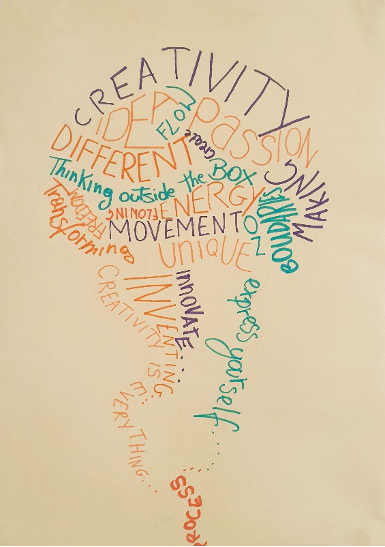 CREATIVITY
IDEA
FLOW
Passion
create
DIFFERENT
Thinking outside the BOX
MAKING
NO BOUNDARIES
ENERGY
FREEDOM
Transforming
MOVEMENT
UNIQUE
INNOVATE...
INVENTING
CREATIVITY IS
E:VERYTHING...
express yourself....
PROCESS